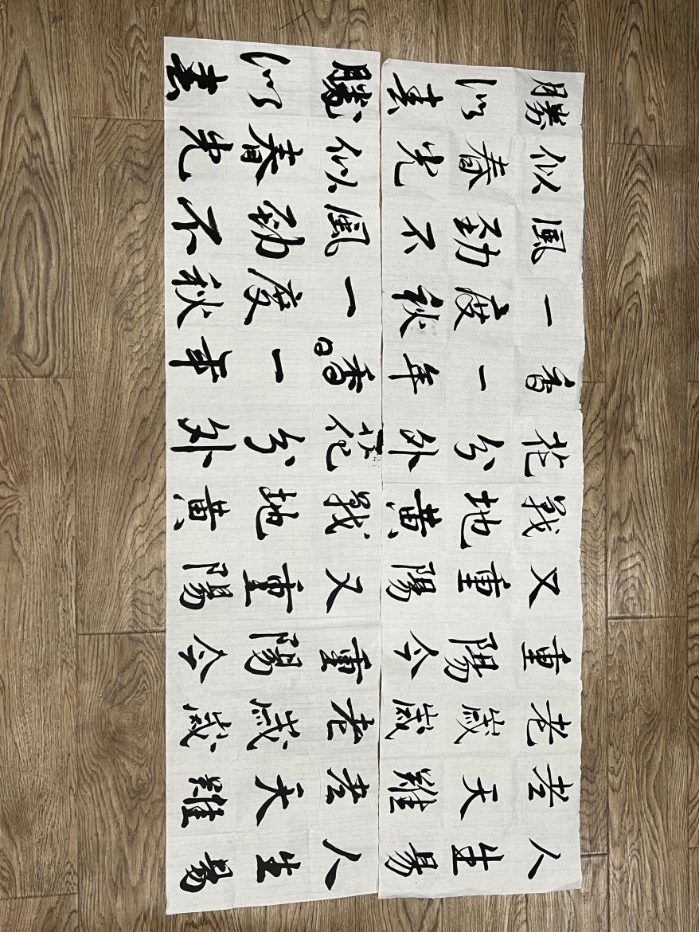 人生易
老天難
老歲歲
重陽今
又重陽
戰地黃
花分外
香一年
一度秋
風勁不
似春光
勝似春
人生易
老天難
老歲歲
重陽今
又重陽
戰地黃
花分外
香一年
一度秋
風勁不
似春光
勝似春